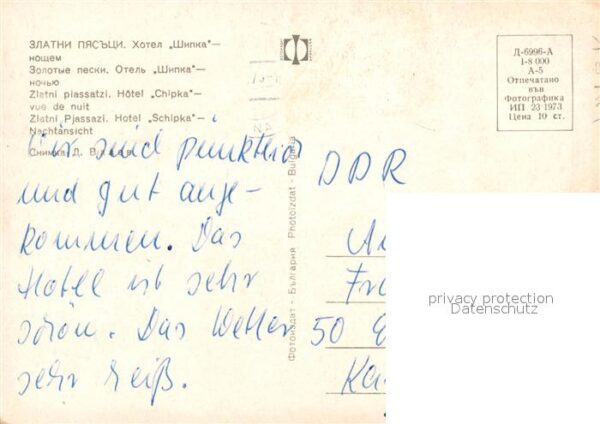 ЗЛАТНИ ПЯСЪЦИ. Хотел „Шипка“—
нощем
Золотые пески. Отель „Шипка“—
ночью
Zlatni piassatzi. Hôtel „Chipka“—
vue de nuit
Zlatni Pjassazi. Hotel „Schipka“—
Nachtansicht
Снимка Д.
Д-6996-А
1-8 000
А-5
Отпечатано
във
Фотографика
ИП 23 1973
Цена 10 ст.
Фотоиздат - България Photoizdat - Bulgaria
Wir sind pünktlich
und gut ange-
kommen. Das
Hotel ist sehr
schön. Das Wetter
sehr heiß.
DDR
50
privacy protection
Datenschutz